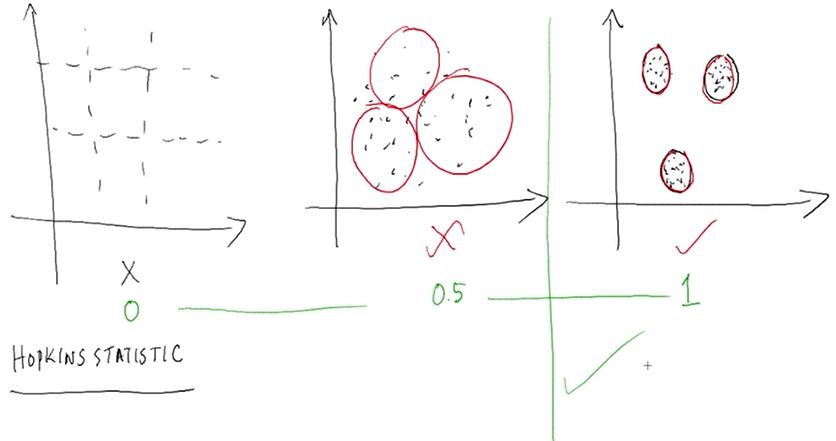 X
0 0.5 1
HOPKINS STATISTIC